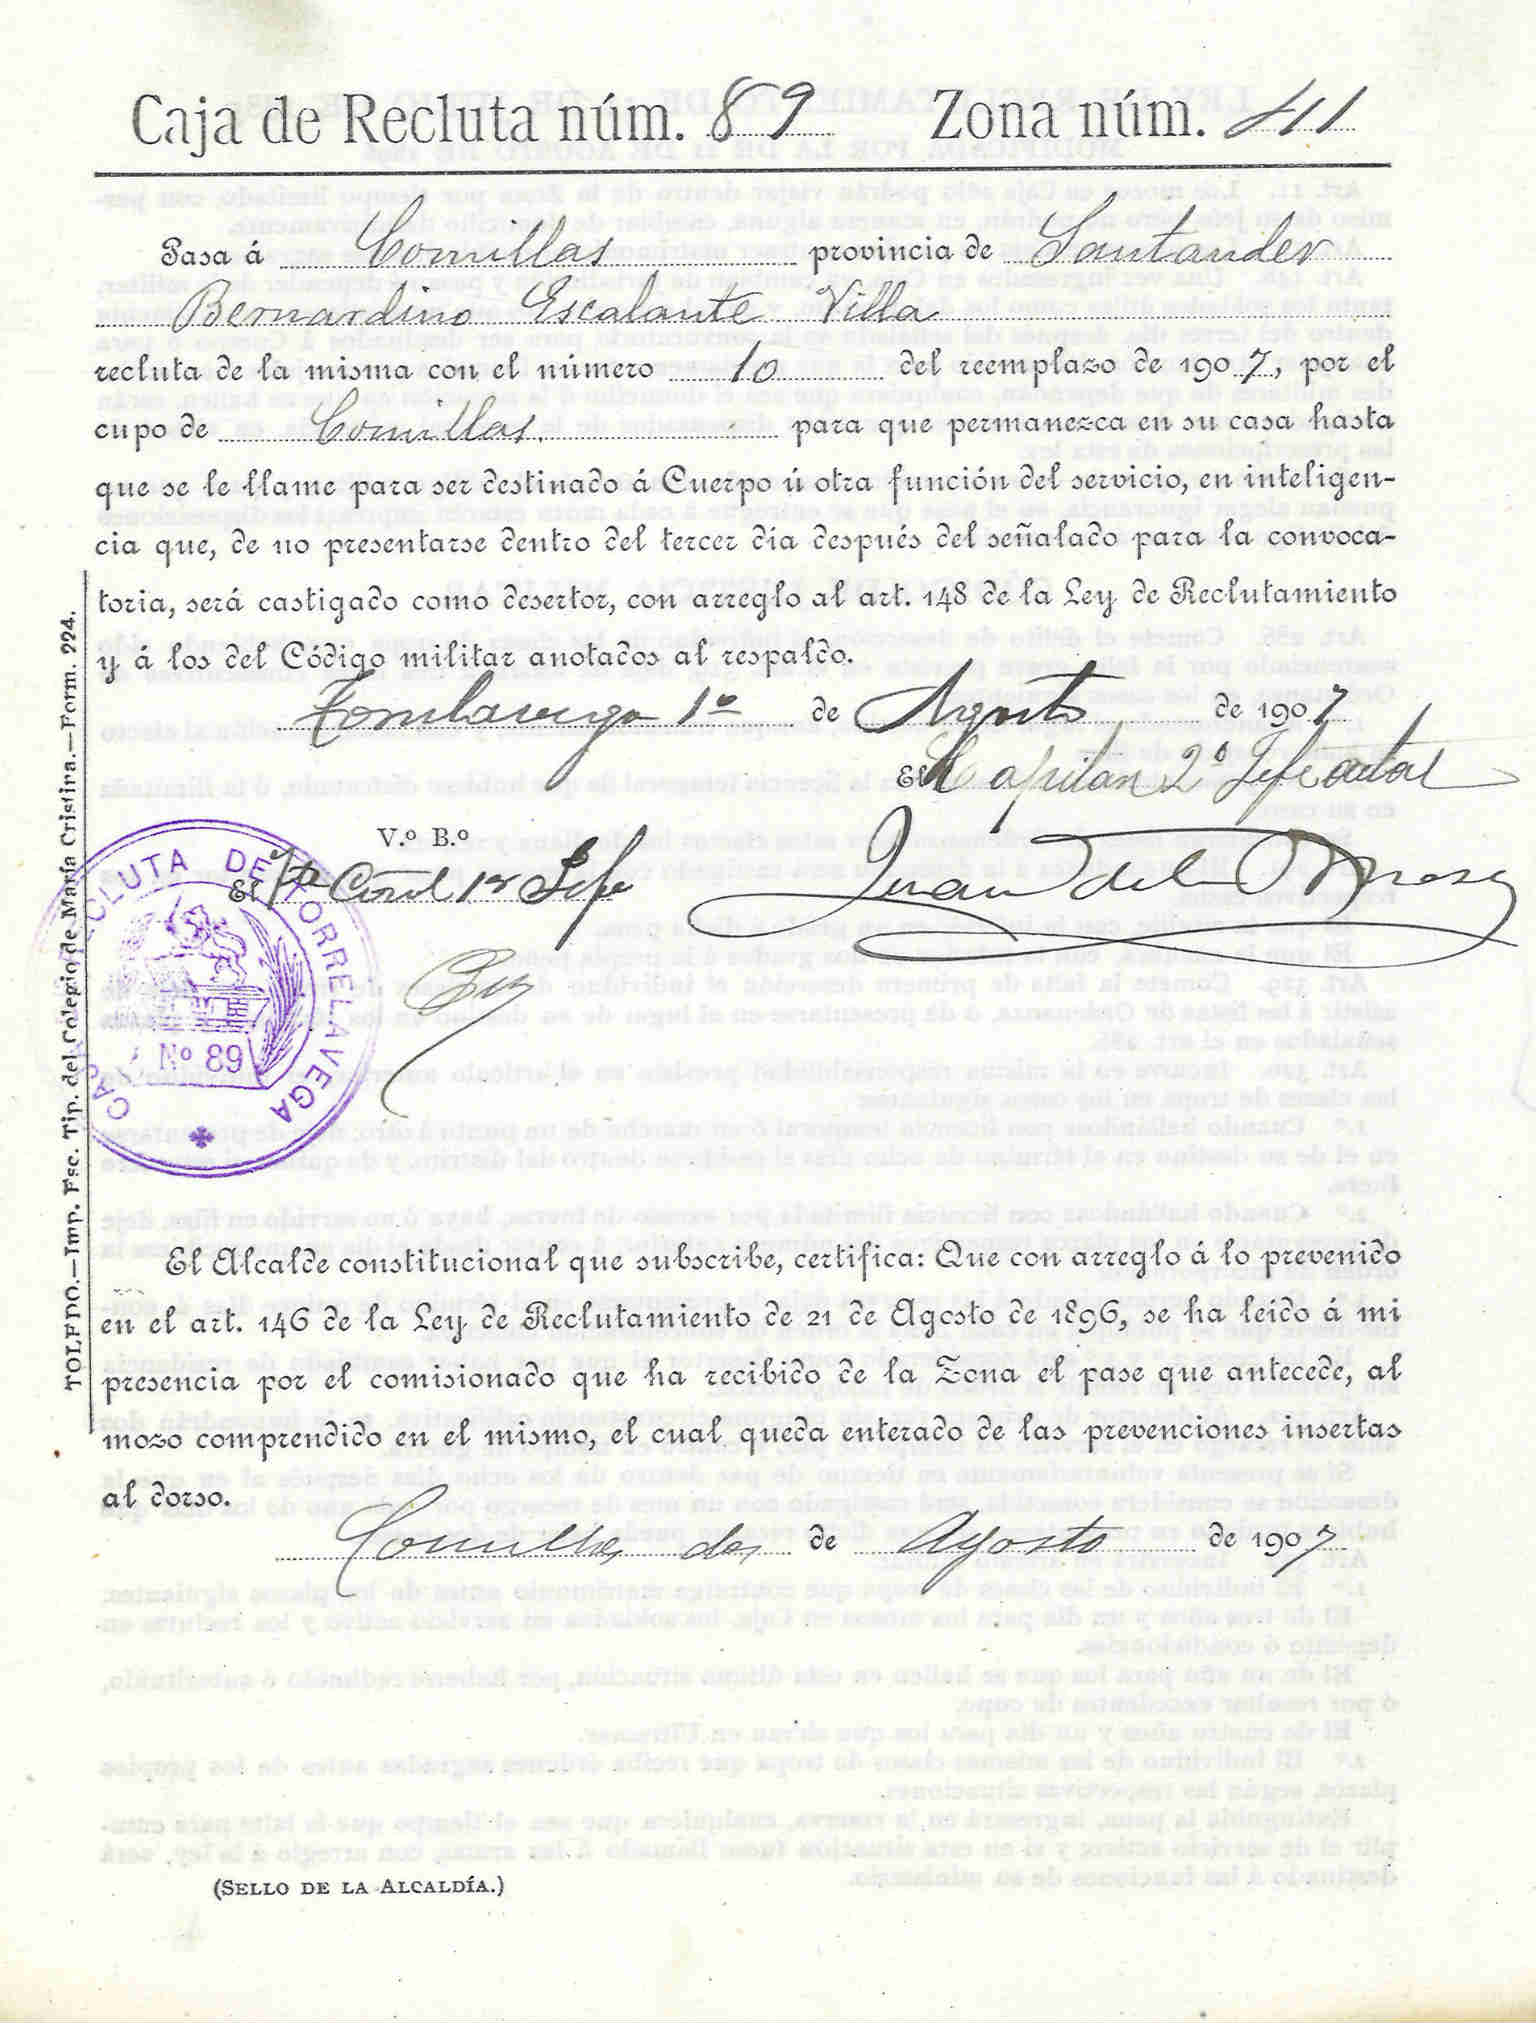 Caja de Recluta núm. 89 Zona núm. 41
Pasa á Comillas provincia de Santander
Bernardino Escalante Villa
recluta de la misma con el número 10 del reemplazo de 1907, por el
cupo de Comillas. para que permanezca en su casa hasta
que se le llame para ser destinado á Cuerpo ú otra función del servicio, en inteligen-
cia que, de no presentarse dentro del tercer día después del señalado para la convoca-
toria, será castigado como desertor, con arreglo al art. 148 de la Ley de Reclutamiento
y á los del Código militar anotados al respaldo.
Torrelavega 1º de Agosto de 1907
El Capitan 2º Jefe actal
V.º B.º
El Te Cornl 1er Jefe
Juan del
CAJA RECLUTA DE TORRELAVEGA
Nº 89
TOLEDO.—Imp. Esc. Tip. del Colegio de María Cristina.—Form. 224.
El Alcalde constitucional que subscribe, certifica: Que con arreglo á lo prevenido
en el art. 146 de la Ley de Reclutamiento de 21 de Agosto de 1896, se ha leido á mi
presencia por el comisionado que ha recibido de la Zona el pase que antecede, al
mozo comprendido en el mismo, el cual queda enterado de las prevenciones insertas
al dorso.
Comillas dos de Agosto de 1907
(SELLO DE LA ALCALDÍA.)